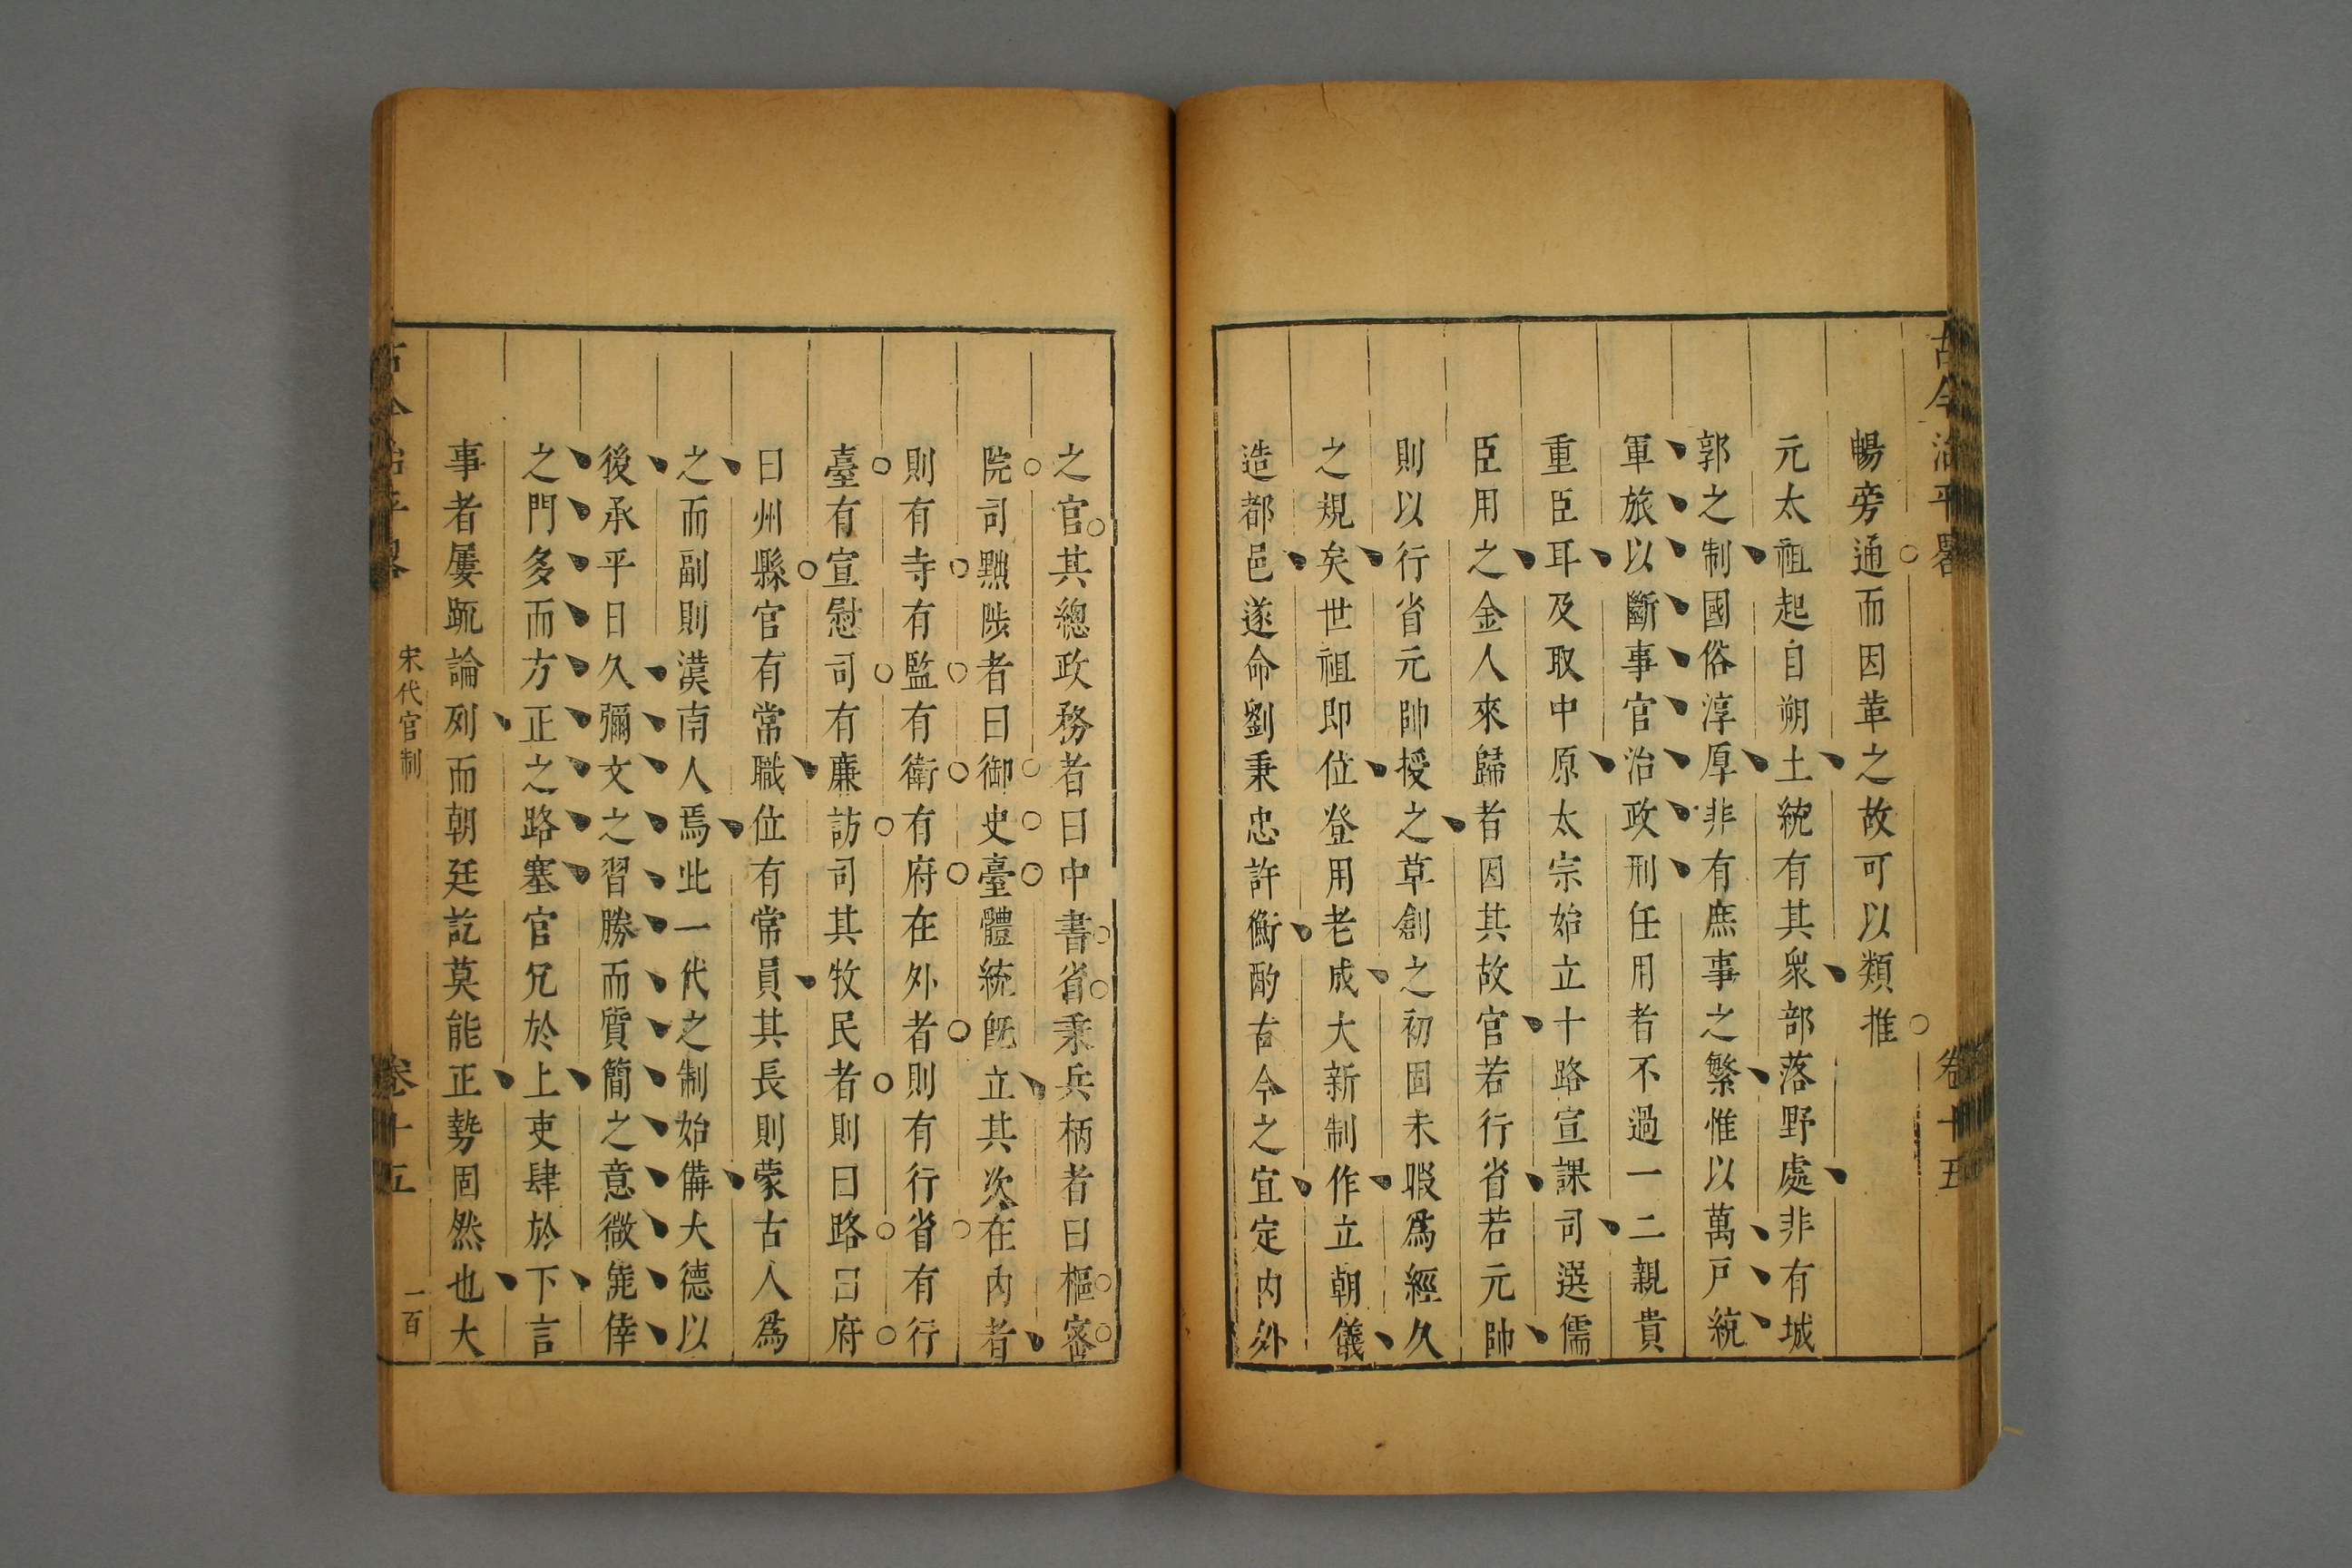 古今治平畧
卷十五
暢旁通而因革之故可以類推
元太祖起自朔土統有其衆部落野處非有城
郭之制國俗淳厚非有庶事之繁惟以萬戸統
軍旅以斷事官治政刑任用者不過一二親貴
重臣耳及取中原太宗始立十路宣課司選儒
臣用之金人來歸者因其故官若行省若元帥
則以行省元帥授之草創之初固未暇爲經久
之規矣世祖即位登用老成大新制作立朝儀
造都邑遂命劉秉忠許衡酌古今之宜定内外
之官其總政務者曰中書省秉兵柄者曰樞密
院司黜陟者曰御史臺體統既立其次在内者
則有寺有監有衛有府在外者則有行省有行
臺有宣慰司有廉訪司其牧民者則曰路曰府
曰州縣官有常職位有常員其長則蒙古人爲
之而副則漢南人焉此一代之制始備大德以
後承平日久彌文之習勝而質簡之意微僥倖
之門多而方正之路塞官冗於上吏肆於下言
事者屢疏論列而朝廷訖莫能正勢固然也大
古今治平畧
宋代官制
卷十五
一百